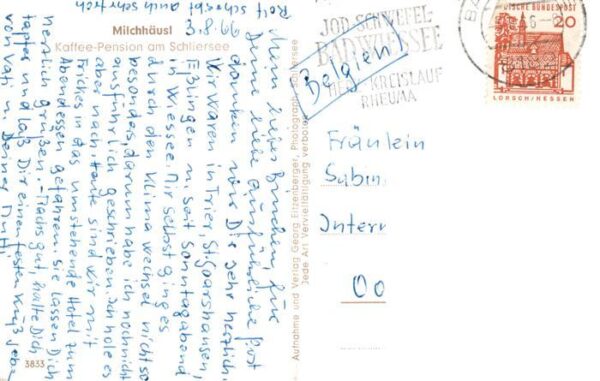 Milchhäusl
Kaffee-Pension am Schliersee
3833
Aufnahme und Verlag Georg Fitzenberger, Photograph, Schliersee
Jede Art Vervielfältigung verboten
3.8.66
Mein liebes Binchen, für
Deine liebe ausführliche Post
danken wir Dir sehr herzlich.
Wir waren in Trier, St. Goarshausen,
Eßlingen u. seit Sonntagabend
in Wiessee. Mir selbst ging es
durch den Klimawechsel nicht so
besonders, darum habe ich noch nicht
ausführlich geschrieben. Ich hole es
aber nach. Heute sind wir mit
Frickes in das umstehende Hotel zum
Abendessen gefahren. Sie lassen Dich
herzlich grüßen. - Mach's gut, halte Dich
tapfer und laß Dir einen festen Kuß geben
von Vati u. Deiner Mutti
Rolf schreibt auch sehr froh
JOD-SCHWEFEL-
BAD WIESSEE
HERZ KREISLAUF
RHEUMA
Belgien
DEUTSCHE BUNDESPOST
20
LORSCH/HESSEN
Fräulein
Sabin
Intern
Oo